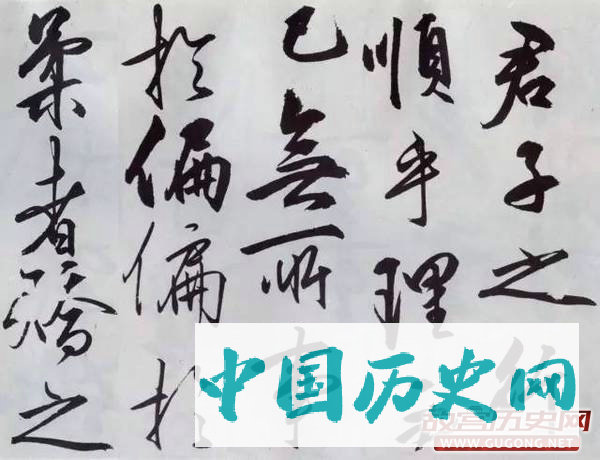 君子之
順乎理
已無所
於偏偏於
柔者矯之
中国历史网
故宫历史网
WWW.GUGONG.NET